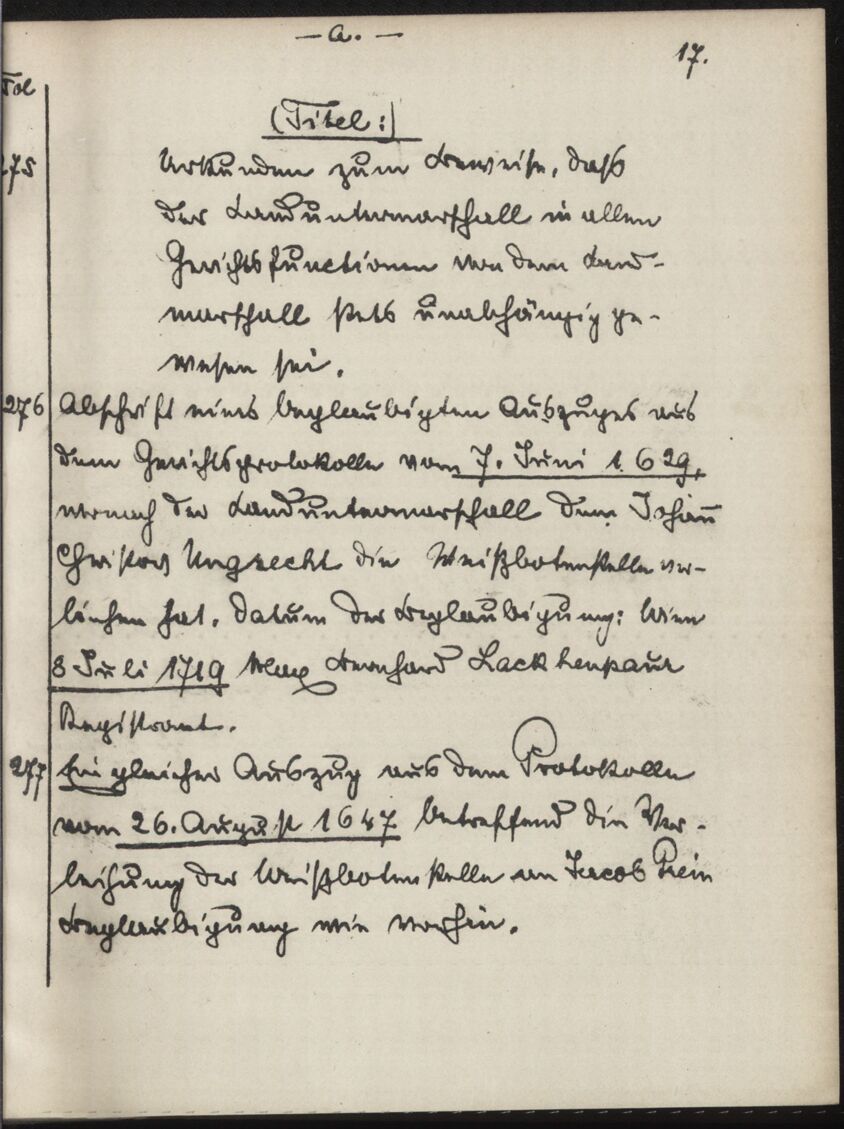 — a. —
17.
Fol
(Titel:)
275 Urkunden zum Beweise, daß
der Landuntermarschall in allen
Gerichtsfunctionen von dem Land-
marschall stets unabhängig ge-
wesen sei.
276 Abschrift eines beglaubigten Auszuges aus
dem Gerichtsprotokolle vom 7. Juni 1629,
wornach der Landuntermarschall dem Johann
Christov Ungrecht die Weißbotenstelle ver-
liehen hat. Datum der Beglaubigung: Wien
8 Juli 1719 Max Bernhard Lackhenpaur
Registrant.
277 Ein gleicher Auszug aus dem Protokolle
vom 26. August 1647 betreffend die Ver-
leihung der Weißbotenstelle an Jacob Prein
Beglaubigung wie vorhin.